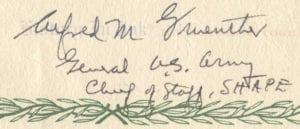 Alfred M Gruenther
General U.S. Army
Chief of Staff, SHAPE